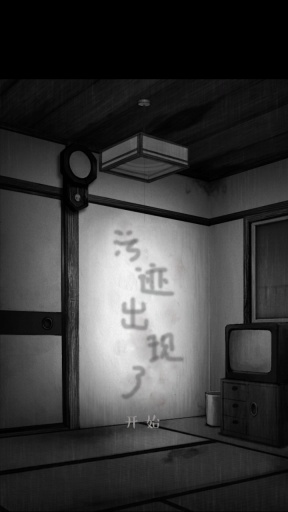 污迹出现了
开始